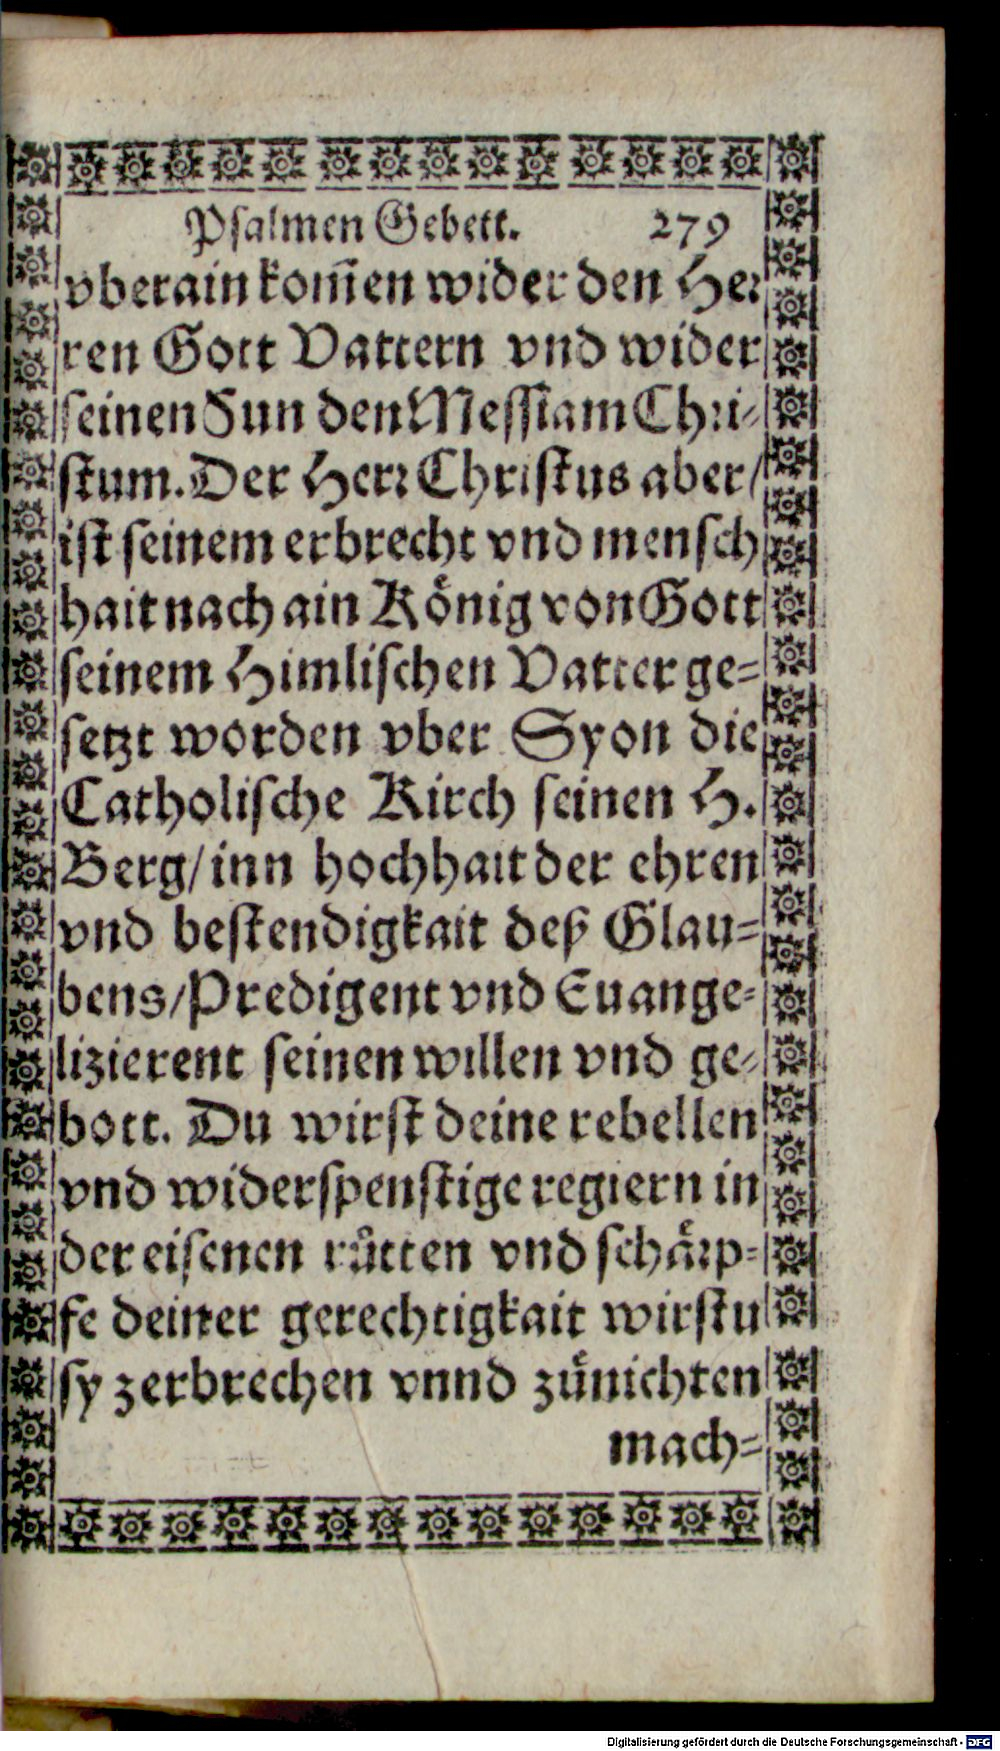 Psalmen Gebett. 279
vberain kom̃en wider den Her
ren Gott Vattern vnd wider
seinen Sun den Messiam Chri-
stum. Der Herr Christus aber/
ist seinem erbrecht vnd mensch
hait nach ain König von Gott
seinem Himlischen Vatter ge-
setzt worden vber Syon die
Catholische Kirch seinen H.
Berg/ inn hochhait der ehren
vnd bestendigkait deß Glau-
bens/ Predigent vnd Euange-
lizierent seinen willen vnd ge-
bott. Du wirst deine rebellen
vnd widerspenstige regiern in
der eisenen růtten vnd schärp-
fe deiner gerechtigkait wirstu
sy zerbrechen vnnd zůnichten
mach-
Digitalisierung gefördert durch die Deutsche Forschungsgemeinschaft - DFG